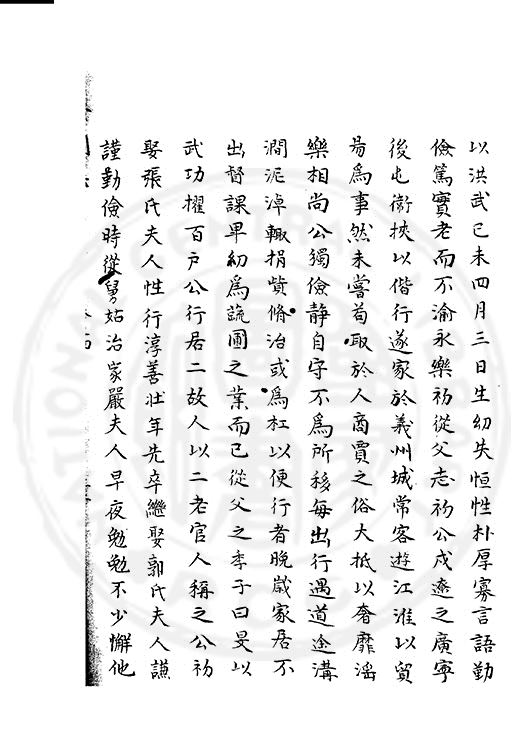 以洪武己未四月三日生幼失恒性朴厚寡言語勤
儉篤實老而不渝永樂初從父志初公戍遼之廣寧
後屯衛挾以偕行遂家於義州城常客遊江淮以貿
易為事然未嘗苟取於人商賈之俗大抵以奢靡淫
樂相尚公獨儉靜自守不為所移每出行遇道途溝
澗泥淖輙捐貲脩治或為杠以便行者晚歲家居不
出督課畢幼為蔬圃之業而已從父之季子曰旻以
武功擢百户公行居二故人以二老官人稱之公初
娶張氏夫人性行淳善壯年先卒繼娶郭氏夫人謙
謹勤儉時從舅姑治家嚴夫人早夜勉勉不少懈他